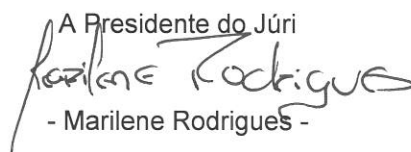 A Presidente do Júri
Marilene Rodrigues
- Marilene Rodrigues -